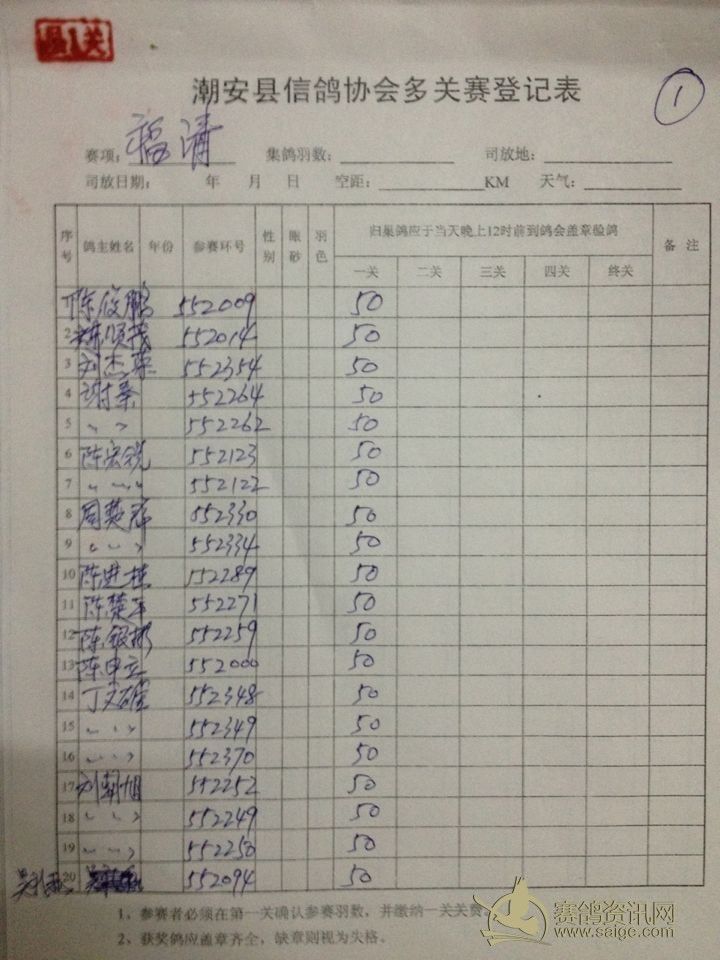 潮安县信鸽协会多关赛登记表
1
赛项：福清 集鸽羽数： 司放地：
司放日期： 年 月 日 空距： KM 天气：
序号 鸽主姓名 年份 参赛环号 性别 眼砂 羽色 归巢鸽应于当天晚上12时前到鸽会盖章验鸽 备注
一关 二关 三关 四关 终关
1 陈俊鹏 552009 50
2 552014 50
3 刘杰 552354 50
4 谢秦 552264 50
5 〃 〃 552262 50
6 陈宏锐 552123 50
7 〃 〃 〃 552122 50
8 周 552330 50
9 〃 〃 〃 552334 50
10 陈进桂 552289 50
11 陈楚平 552271 50
12 陈银彬 552259 50
13 陈中立 552000 50
14 丁 552348 50
15 〃 〃 〃 552349 50
16 〃 〃 〃 552370 50
17 刘朝旭 552252 50
18 〃 〃 〃 552249 50
19 〃 〃 〃 552250 50
20 552094 50
1、参赛者必须在第一关确认参赛羽数，并缴纳一关关费。
2、获奖鸽应盖章齐全，缺章则视为失格。
赛鸽资讯网
www.saige.com